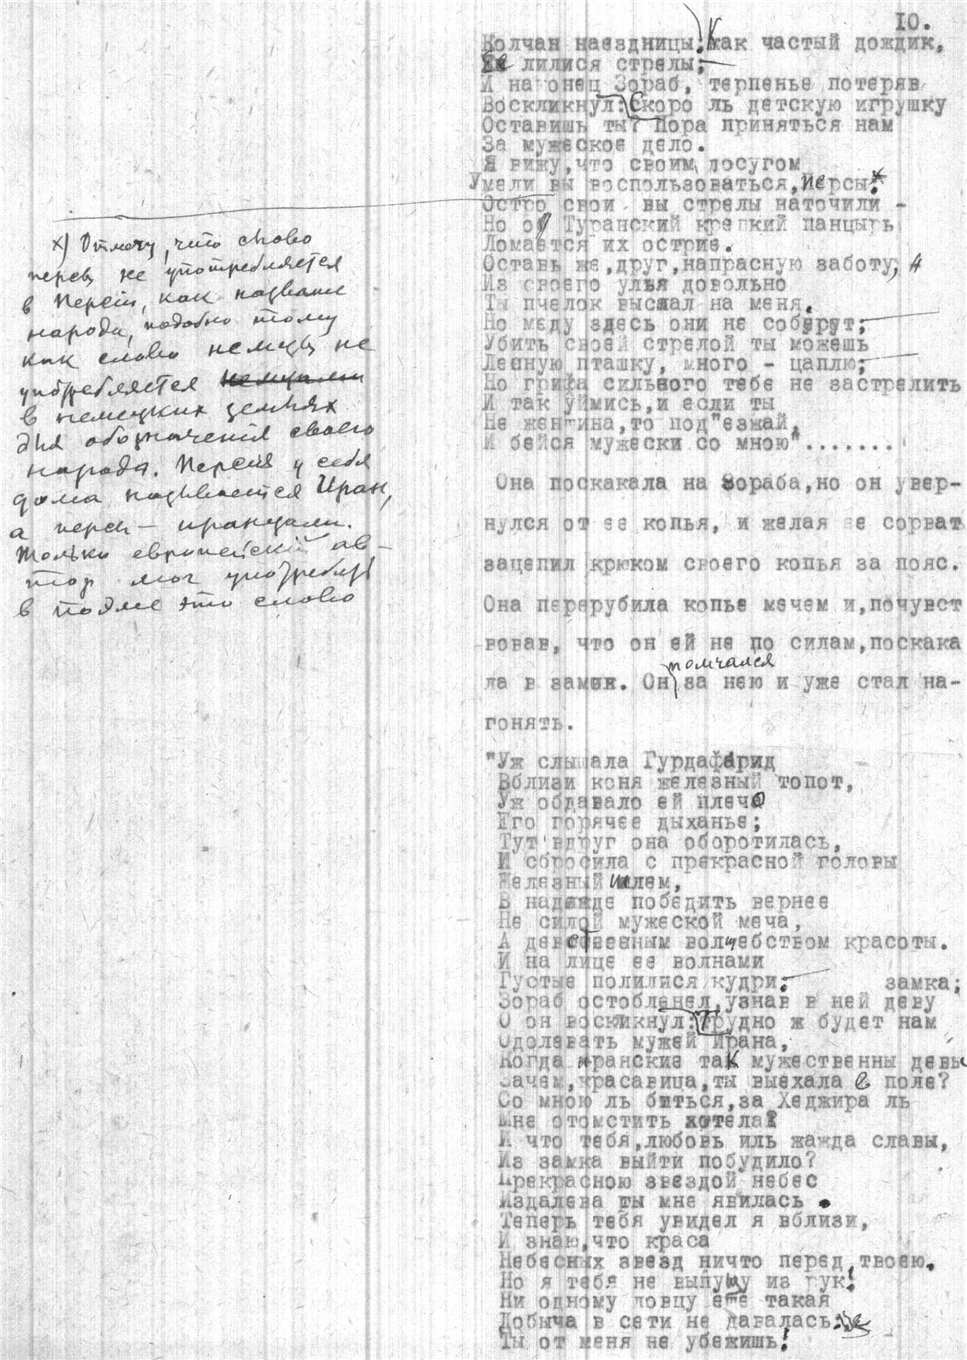 10.
Колчан наездницы; Как частый дождик,
Ее лилися стрелы;
И наконец Зораб, терпенье потеряв
Воскликнул: Скоро ль детскую игрушку
Оставишь ты? Пора приняться нам
За мужеское дело.
Я вижу,что своим досугом
Умели вы воспользоваться,Персы:*
Остро свои вы стрелы наточили -
Но об Туранский крепкий панцырь
Ломается их острие.
Оставь же,друг,напрасную заботу,
Из своего улья довольно
Ты пчелок выслал на меня.
Но меду здесь они не соберут;
Убить своей стрелой ты можешь
Лесную пташку, много - цаплю;
Но грифа сильного тебе не застрелить
И так уймись,и если ты
Не женщина,то под"езжай,
И бейся мужески со мною".......
Она поскакала на Зораба,но он увер-
нулся от ее копья, и желая ее сорват
зацепил крюком своего копья за пояс.
Она перерубила копье мечем и,почувст
вовав, что он ей не по силам,поскака
ла в замок. Он помчался за нею и уже стал на-
гонять.
"Уж слышала Гурдафарид
Вблизи коня железный топот,
Уж обдавало ей плечо
Его горячее дыханье;
Тут вдруг она оборотилась,
И сбросила с прекрасной головы
Железный шлем,
В надежде победить вернее
Не силой мужеской меча,
А девственным волшебством красоты.
И на лице ее волнами
Густые полилися кудри; замка;
Зораб остолбенел,узнав в ней деву
О он воскликнул: Трудно ж будет нам
Одолевать мужей Ирана,
Когда иранские так мужественны девы
Зачем,красавица,ты выехала в поле?
Со мною ль биться,за Хеджира ль
Мне отомстить хотела?
И что тебя,любовь иль жажда славы,
Из замка выйти побудило?
Прекрасною звездой небес
Издалева ты мне явилась.
Теперь тебя увидел я вблизи,
И знаю,что краса
Небесных звезд ничто перед твоею.
Но я тебя не выпущу из рук!
Ни одному ловцу еще такая
Добыча в сети не давалась:
Ты от меня не убежишь!
х) Отмечу, что слово
персы не употребляется
в Персии, как название
народа, подобно тому
как слово немцы не
употребляется
в немецких землях
для обозначения своего
народа. Персия у себя
дома называется Иран,
а персы - иранцами.
Только европейский ав-
тор мог употребить
в поэме это слово